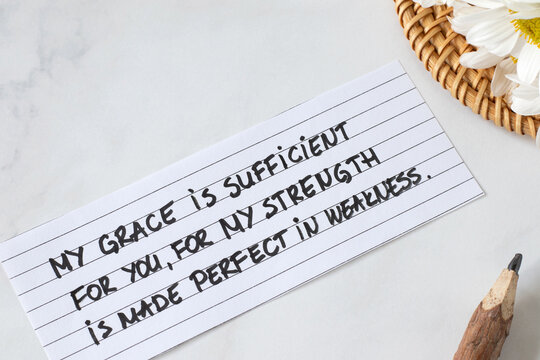 MY GRACE iS SUFFiCiENT
FOR YOU, FOR MY STRENGTH
iS MADE PERFECT iN WEAKNESS.